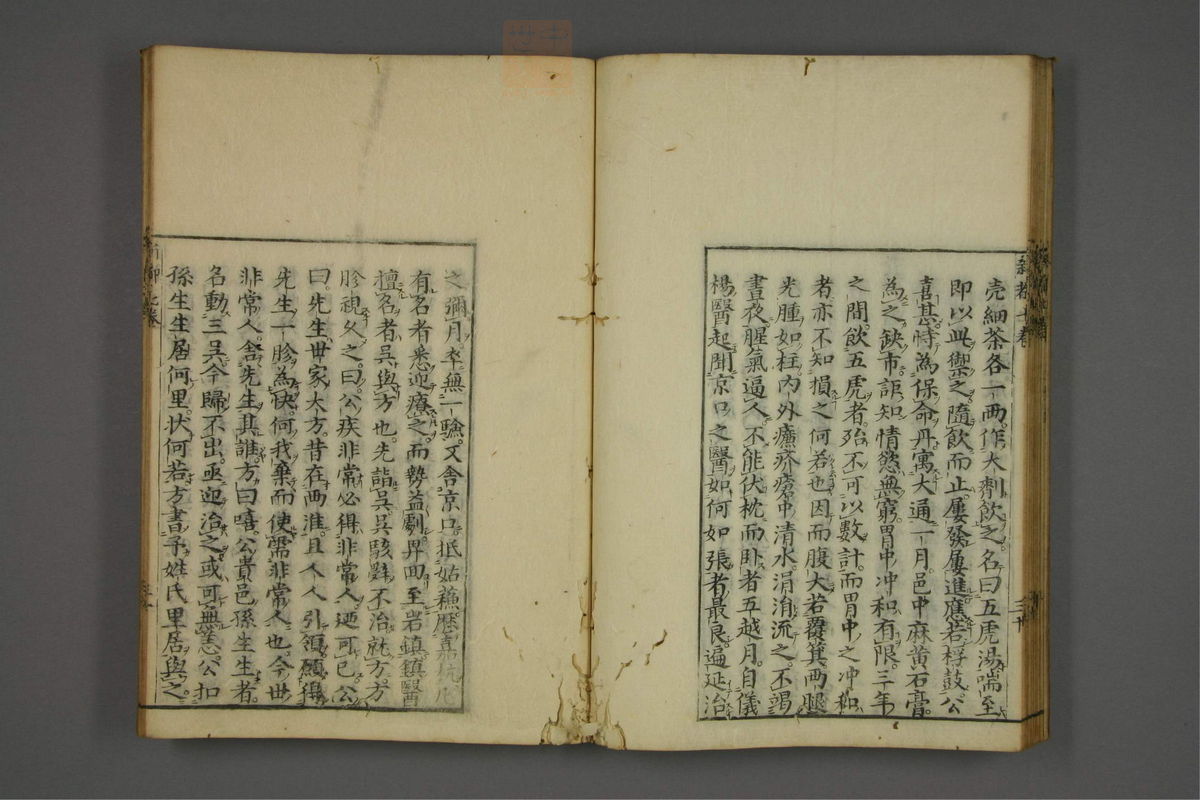 壳細茶各一兩作大劑飲之名曰五虎湯喘至
即以此禦之隨飲而止屢發屢進應若桴鼓公
喜甚恃為保命丹寓大通一月邑中麻黃石膏
為之缺市詎知情慾無窮胃中冲和有限三年
之間飲五虎者殆不可以數計而胃中之冲和
者亦不知損之何若也因而腹大若覆箕兩腿
光腫如柱內外臁疥瘡中清水涓涓流之不竭
晝夜腥氣逼人不能伏枕而臥者五越月自儀
楊醫起聞京口之醫如何如張者最良遍延治
之彌月卒無一驗又舍京口抵姑蘇歷嘉杭凡
有名者悉迎療之而勢益劇畀回至岩鎮鎮醫
擅名者吳與方也先詣吳吳駭辭不治就方方
胗視久之曰公疾非常必得非常人迺可已公
曰先生世家大方昔在兩淮且人人引領願得
先生一胗為快何我棄而使需非常人也今世
非常人舍先生其誰方曰嘻公貴邑孫生生者
名動三吳今歸不出亟迎治之或可無恙公扣
孫生生居何里狀何若方書予姓氏里居與之